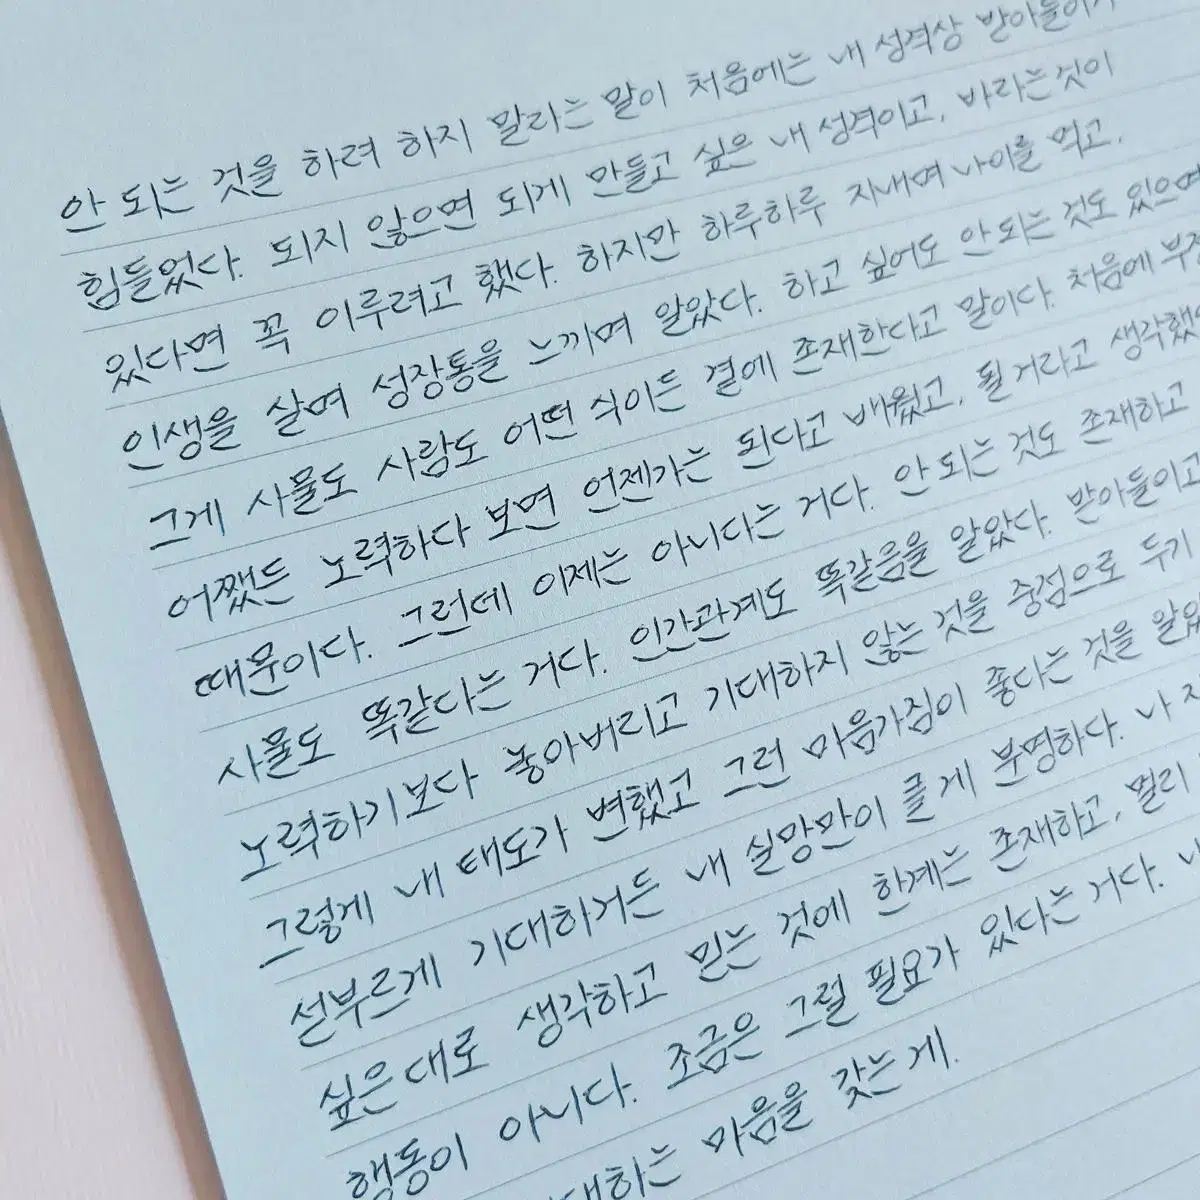 안 되는 것을 하려 하지 말라는 말이 처음에는 내 성격상 받아들이기
힘들었다. 되지 않으면 되게 만들고 싶은 내 성격이고, 바라는것이
있다면 꼭 이루려고 했다. 하지만 하루하루 지내며 나이를 먹고,
인생을 살며 성장통을 느끼며 알았다. 하고 싶어도 안 되는 것도 있으며
그게 사물도 사람도 어떤 식이든 곁에 존재한다고 말이다. 처음에
어쨌든 노력하다 보면 언젠가는 된다고 배웠고, 될 거라고 생각했
때문이다. 그런데 이제는 아니다는 거다. 안 되는 것도 존재하고
사물도 똑같다는 거다. 인간관계도 똑같음을 알았다. 받아들이고
노력하기보다 놓아버리고 기대하지 않는 것을 중점으로 두기
그렇게 내 태도가 변했고 그런 마음가짐이 좋다는 것을 알았
섣부르게 기대하거든 내 실망만이 클 게 분명하다. 나
싶은대로 생각하고 믿는 것에 한계는 존재하고, 멀리
행동이 아니다. 조금은 그럴 필요가 있다는 거다.
대하는 마음을 갖는 게.